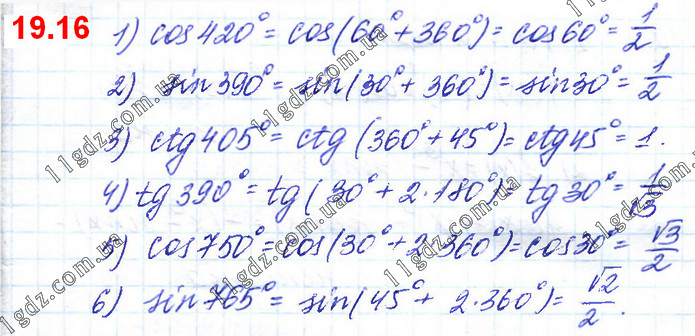 19.16
1) cos420° = cos(60° + 360°) = cos60° = 1/2
2) sin390° = sin(30° + 360°) = sin30° = 1/2
3) ctg405° = ctg(360° + 45°) = ctg45° = 1.
4) tg390° = tg(30° + 2·180°) = tg30° = 1/√3
5) cos750° = cos(30° + 2·360°) = cos30° = √3/2
6) sin765° = sin(45° + 2·360°) = √2/2.
11gdz.com.ua
11gdz.com.ua
11gdz.com.ua
11gdz.com.ua
11gdz.com.ua
11gdz.com.ua